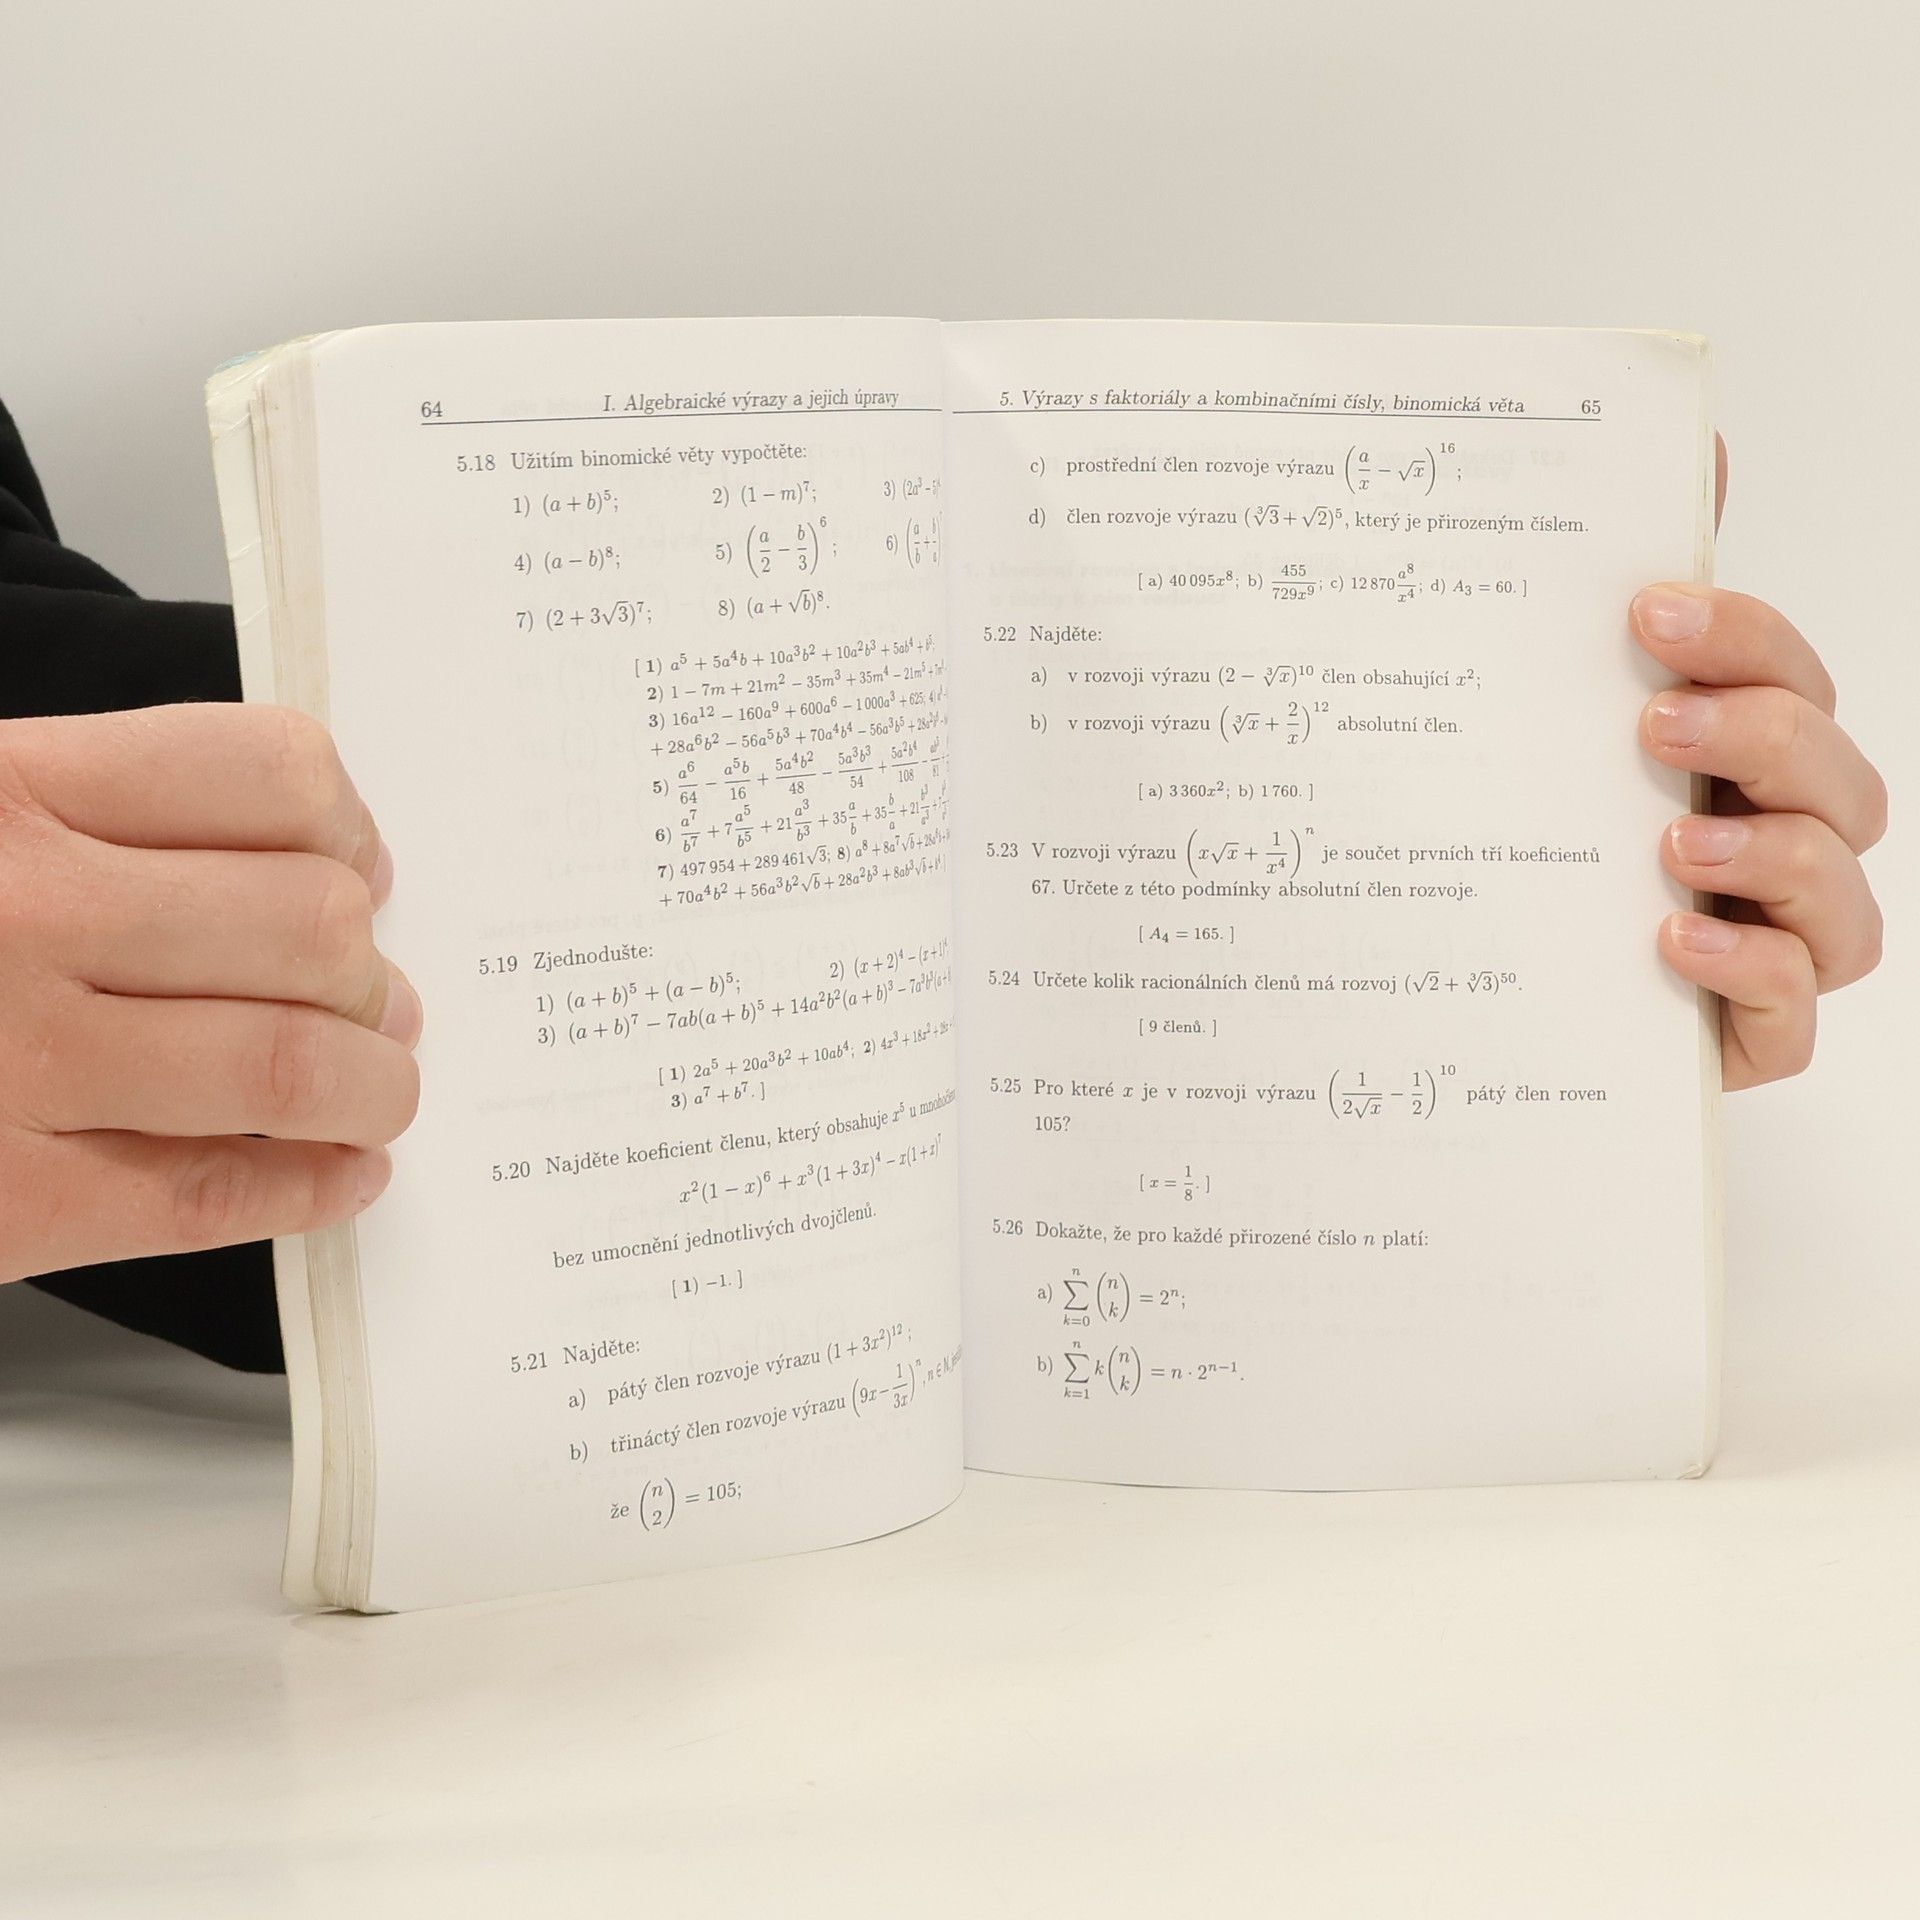 64 I. Algebraické výrazy a jejich úpravy
5.18 Užitím binomické věty vypočtěte:
1) (a + b)⁵; 2) (1 − m)⁷; 3) (2a³ −
4) (a − b)⁸; 5) (a/2 − b/3)⁶; 6) (a/b +
7) (2 + 3√3)⁷; 8) (a + √b)⁸.
[ 1) a⁵ + 5a⁴b + 10a³b² + 10a²b³ + 5ab⁴ + b⁵;
2) 1 − 7m + 21m² − 35m³ + 35m⁴ − 21m⁵ +
3) 16a¹² − 160a⁹ + 600a⁶ − 1 000a³ + 625; 4)
+ 28a⁶b² − 56a⁵b³ + 70a⁴b⁴ − 56a³b⁵ + 28a²b⁶
5) a⁶/64 − a⁵b/16 + 5a⁴b²/48 − 5a³b³/54 + 5a²b⁴/108 −
6) a⁷/b⁷ + 7 a⁵/b⁵ + 21 a³/b³ + 35 a/b + 35 b/a + 21 b³/a³
7) 497 954 + 289 461√3; 8) a⁸ + 8a⁷√b +
+ 70a⁴b² + 56a³b²√b + 28a²b³ + 8ab³√b + b⁴ ]
5.19 Zjednodušte:
1) (a + b)⁵ + (a − b)⁵; 2) (x + 2)⁴ − (x + 1)⁴
3) (a + b)⁷ − 7ab(a + b)⁵ + 14a²b²(a + b)³ − 7a³b³(a +
[ 1) 2a⁵ + 20a³b² + 10ab⁴; 2) 4x³ + 18x² +
3) a⁷ + b⁷. ]
5.20 Najděte koeficient členu, který obsahuje x⁵ u
x²(1 − x)⁶ + x³(1 + 3x)⁴ − x(1 + x)⁷
bez umocnění jednotlivých dvojčlenů.
[ 1) −1. ]
5.21 Najděte:
a) pátý člen rozvoje výrazu (1 + 3x²)¹²;
b) třináctý člen rozvoje výrazu (9x − 1/3x)ⁿ, n ∈ N,
že (n 2) = 105;
5. Výrazy s faktoriály a kombinačními čísly, binomická věta 65
c) prostřední člen rozvoje výrazu (a/x − √x)¹⁶;
d) člen rozvoje výrazu (∛3 + √2)⁵, který je přirozeným číslem.
[ a) 40 095x⁸; b) 455/729x⁹; c) 12 870 a⁸/x⁴; d) A₃ = 60. ]
5.22 Najděte:
a) v rozvoji výrazu (2 − ∛x)¹⁰ člen obsahující x²;
b) v rozvoji výrazu (∛x + 2/x)¹² absolutní člen.
[ a) 3 360x²; b) 1 760. ]
5.23 V rozvoji výrazu (x√x + 1/x⁴)ⁿ je součet prvních tří koeficientů
67. Určete z této podmínky absolutní člen rozvoje.
[ A₄ = 165. ]
5.24 Určete kolik racionálních členů má rozvoj (√2 + ∛3)⁵⁰.
[ 9 členů. ]
5.25 Pro které x je v rozvoji výrazu (1/2√x − 1/2)¹⁰ pátý člen roven
105?
[ x = 1/8. ]
5.26 Dokažte, že pro každé přirozené číslo n platí:
a) ∑ₖ₌₀ⁿ (n k) = 2ⁿ;
b) ∑ₖ₌₁ⁿ k(n k) = n · 2ⁿ⁻¹.